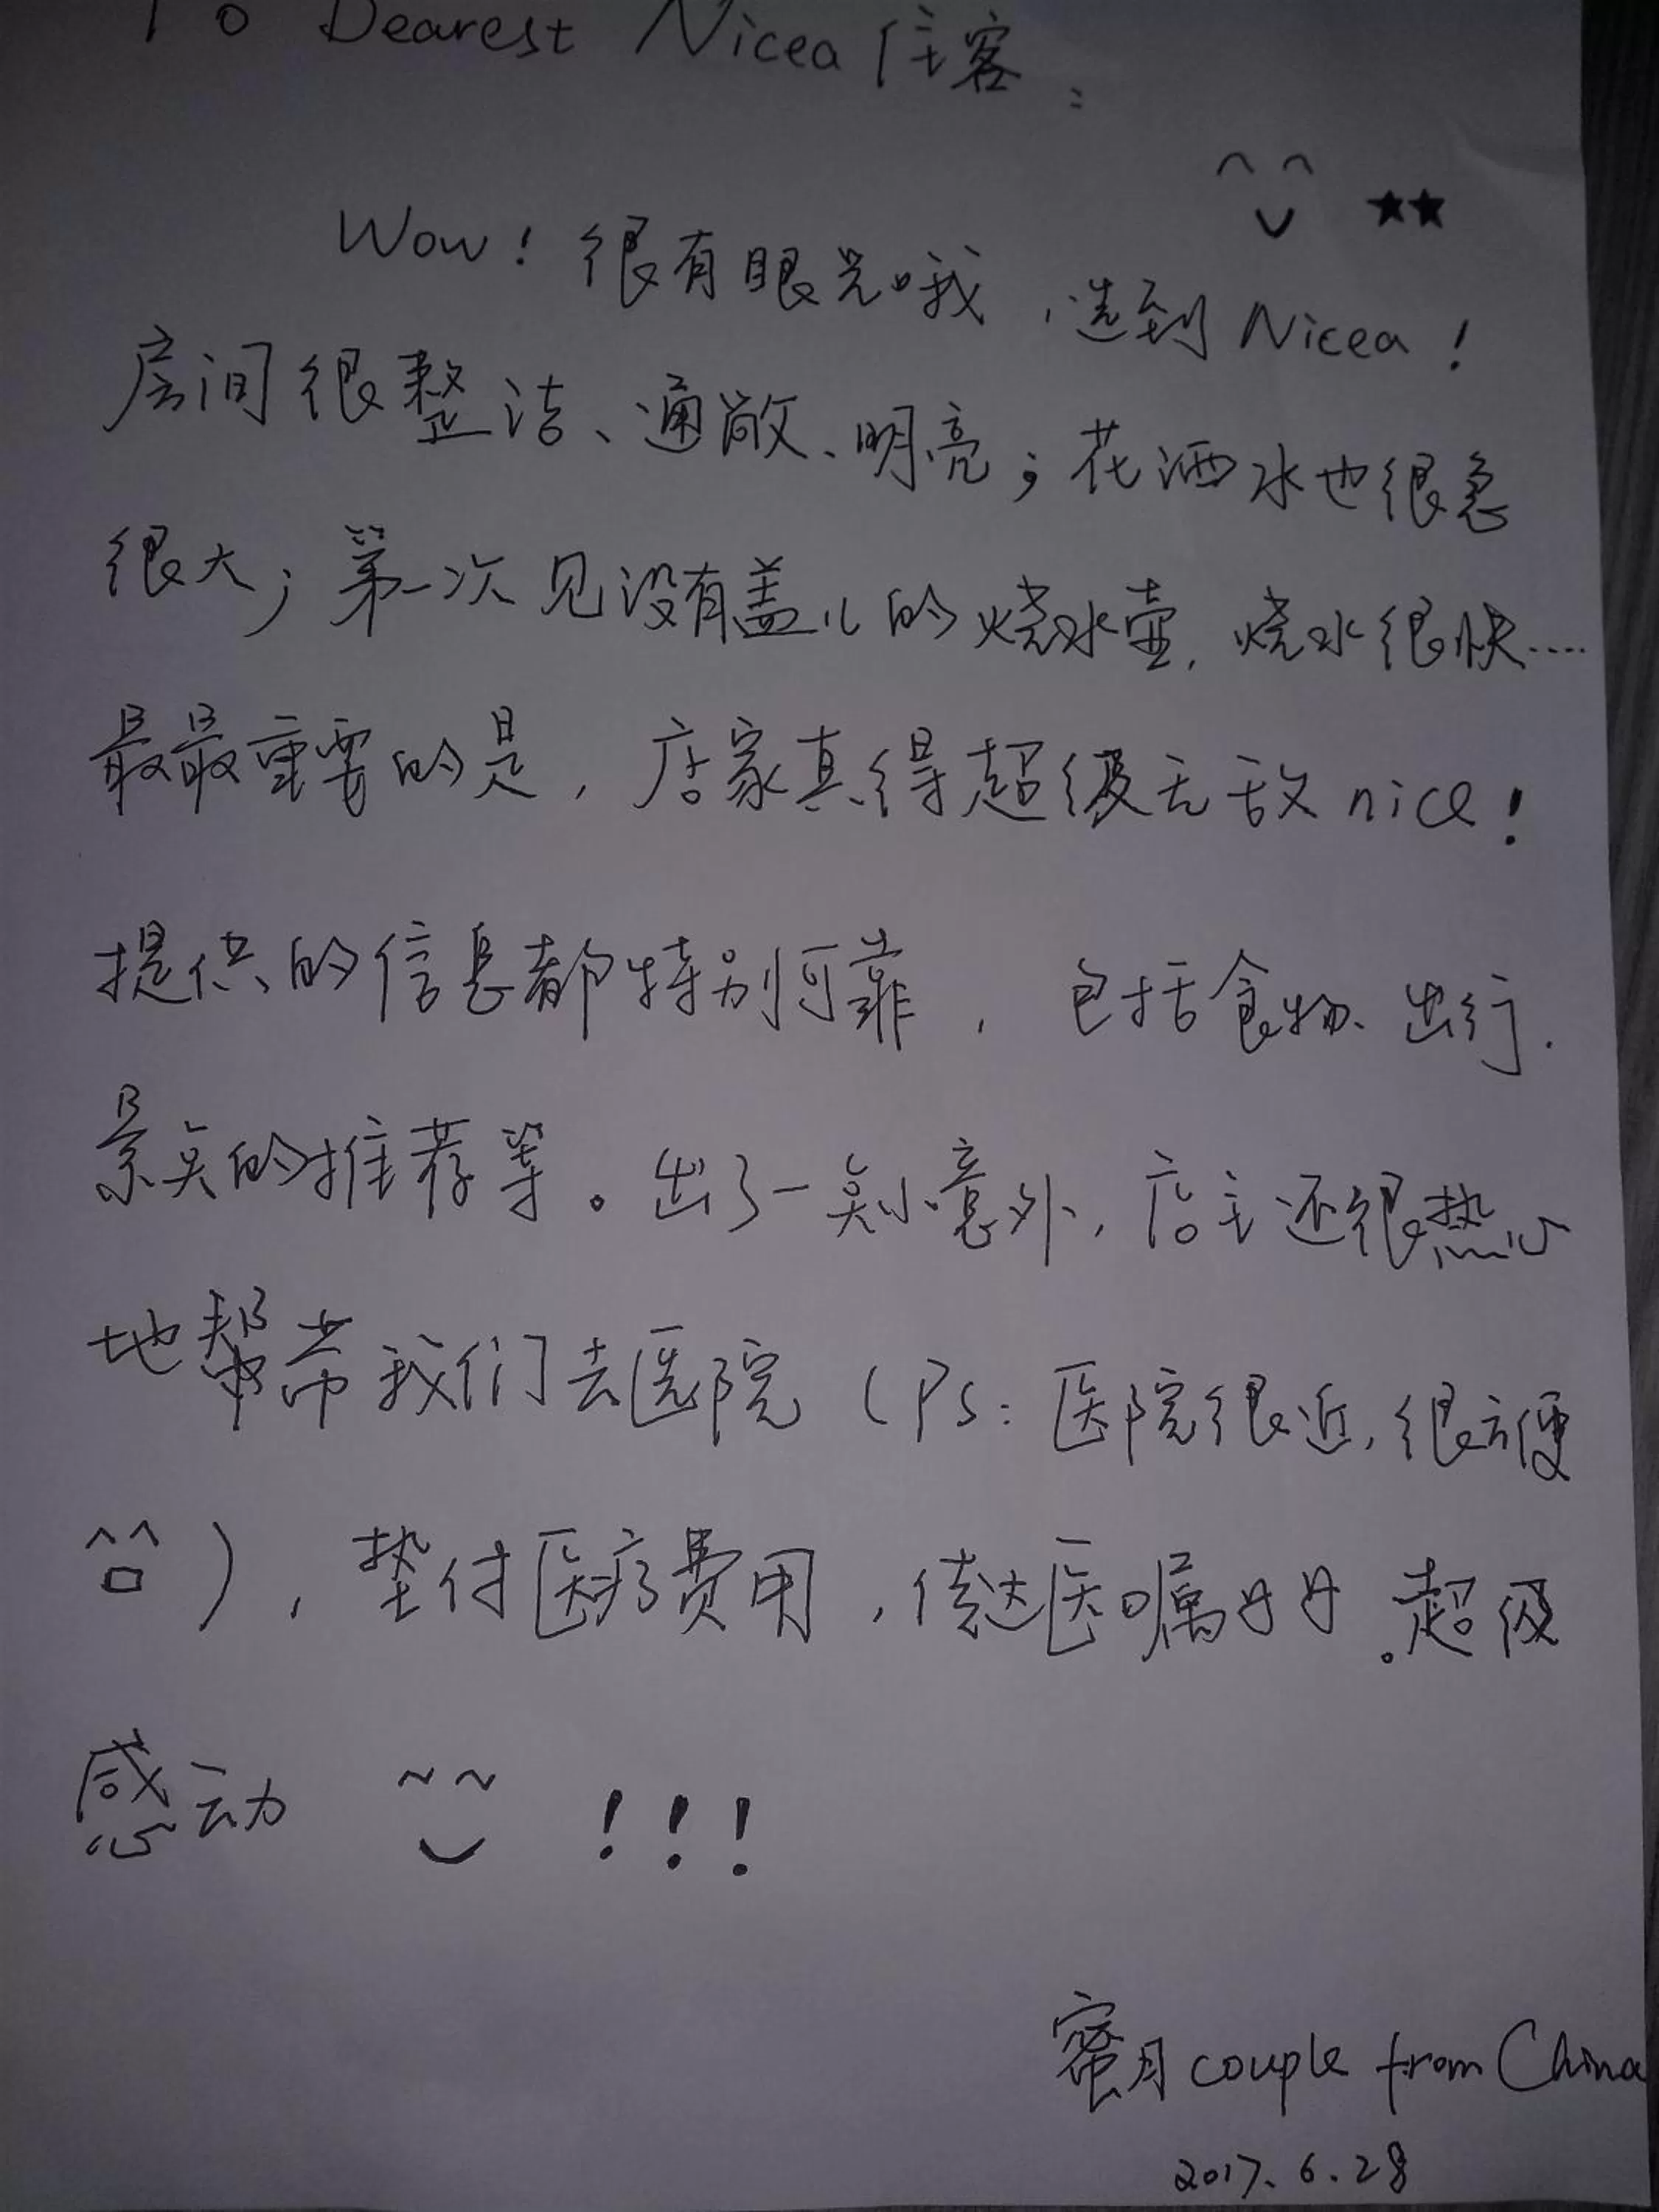 To Dearest Nicea 住客：
Wow！很有眼光哦，选到Nicea！
房间很整洁、通敞、明亮；花洒水也很急
很大；第一次见没有盖儿的烧水壶，烧水很快....
最最重要的是，店家真得超级无敌nice！
提供的信息都特别可靠，包括食物、出行、
景点的推荐等。出了一点小意外，店主还很热心
地帮带我们去医院（PS：医院很近，很方便
），垫付医疗费用，传达医嘱 。超级
感动 ！！！
蜜月couple from China
2017.6.28